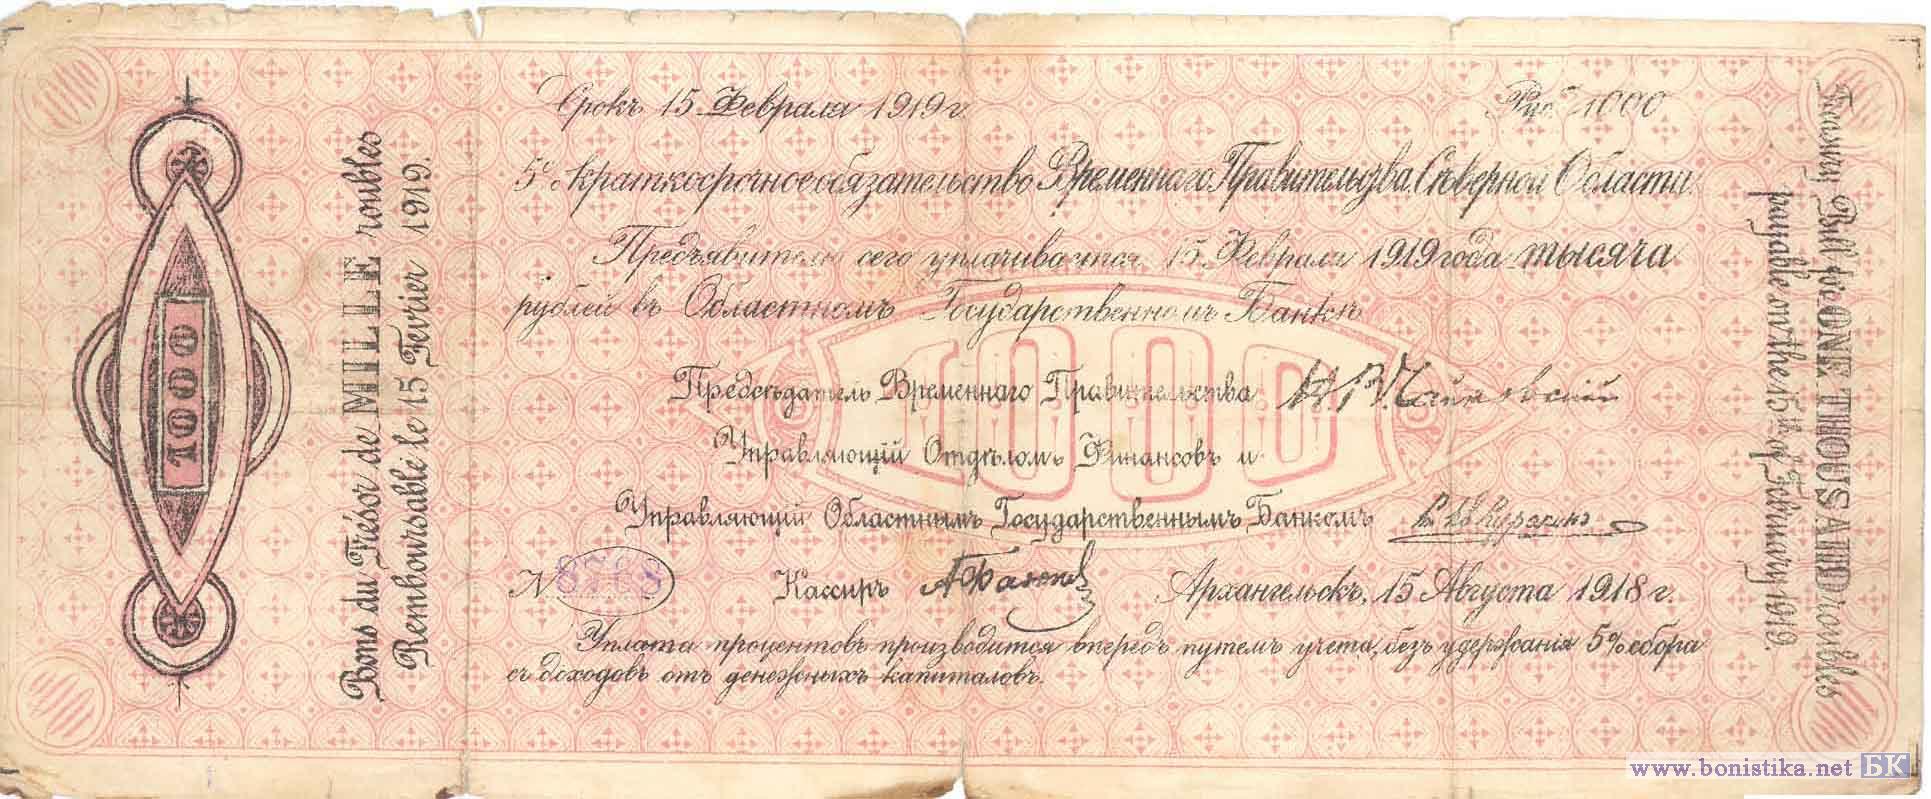 1000
Bons du Trésor de MILLE roubles
Remboursable le 15 Fevrier 1919.
Срокъ 15 Февраля 1919 г.
Руб. 1000
5% краткосрочное обязательство Временнаго Правительства Сѣверной Области
Предъявителю сего уплачивается 15 Февраля 1919 года тысяча
рублей въ Областномъ Государственномъ Банкѣ
1000
Предсѣдатель Временнаго Правительства Н.В. Чайковскій
Управляющій Отдѣломъ Финансовъ и
Управляющій Областнымъ Государственнымъ Банкомъ
N 8768
Кассиръ
Архангельскъ, 15 Августа 1918 г.
Уплата процентовъ производится впередъ путемъ учета, безъ удержанія 5% сбора
съ доходовъ отъ денежныхъ капиталовъ.
Treasury Bill for ONE THOUSAND roubles
payable on the 15th of February 1919.
www.bonistika.net БК